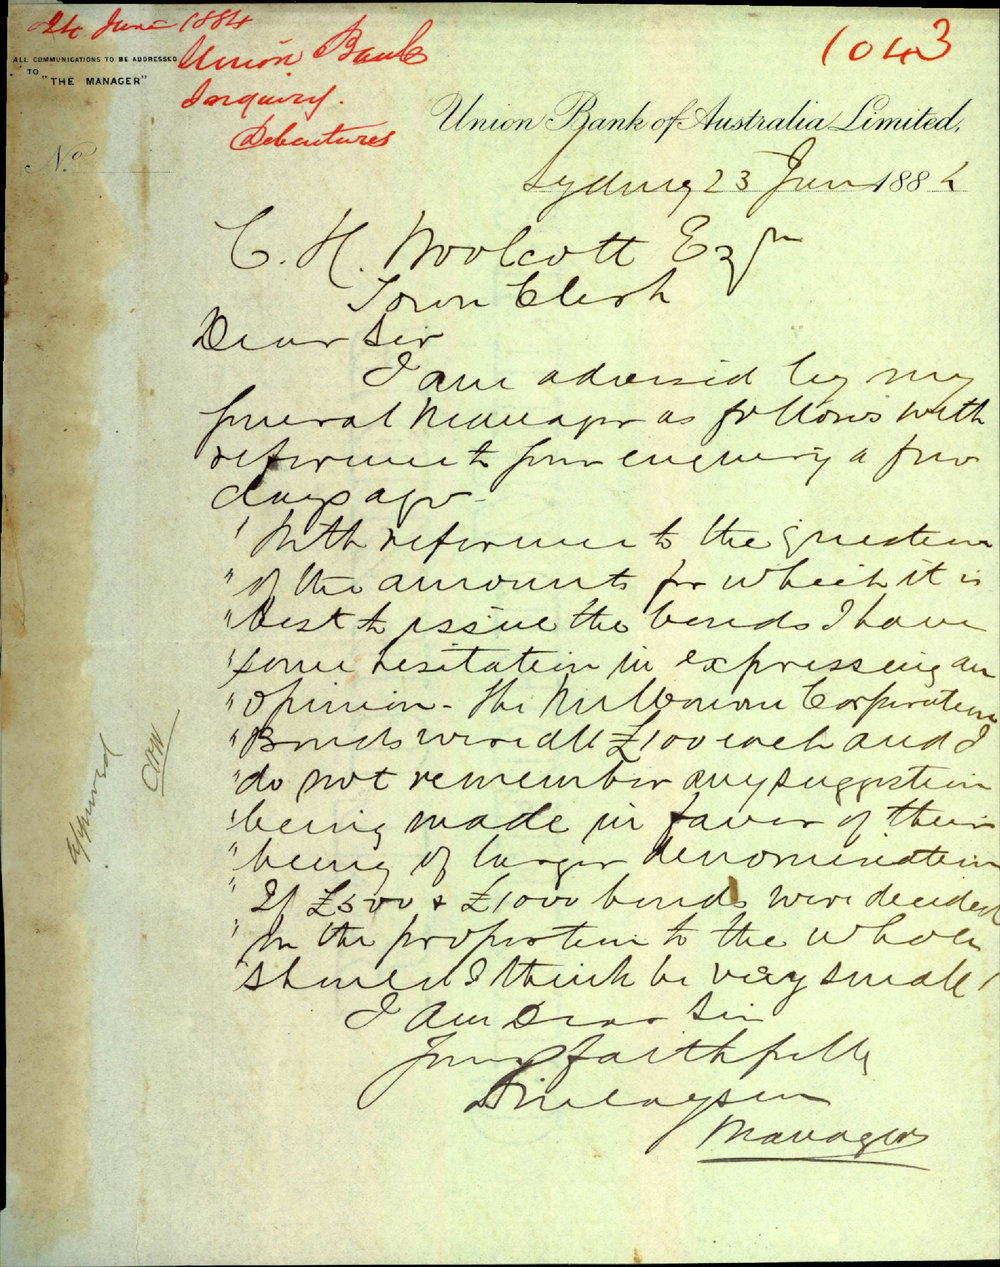 24 June 1884
Union Bank
Inquiry.
Debentures
1043
ALL COMMUNICATIONS TO BE ADDRESSED
TO
"THE MANAGER"
No.
Union Bank of Australia Limited,
Sydney 23 June 1884
C. H. Woolcott Esqr
Town Clerk
Dear Sir
I am advised by my
General Manager as follows with
reference to your enquiry a few
days ago -
"With reference to the question
"of the amounts for which it is
"best to issue the bonds I have
"some hesitation in expressing an
"opinion - The Melbourne Corporation
"Bonds were all £100 each and I
"do not remember any suggestion
"being made in favor of their
"being of larger denomination
"If £500 & £1000 bonds were decided
"on the proportion to the whole
"should I think be very small"
I am Dear Sir
Yours faithfully
Finlayson
Manager
approved
CHW